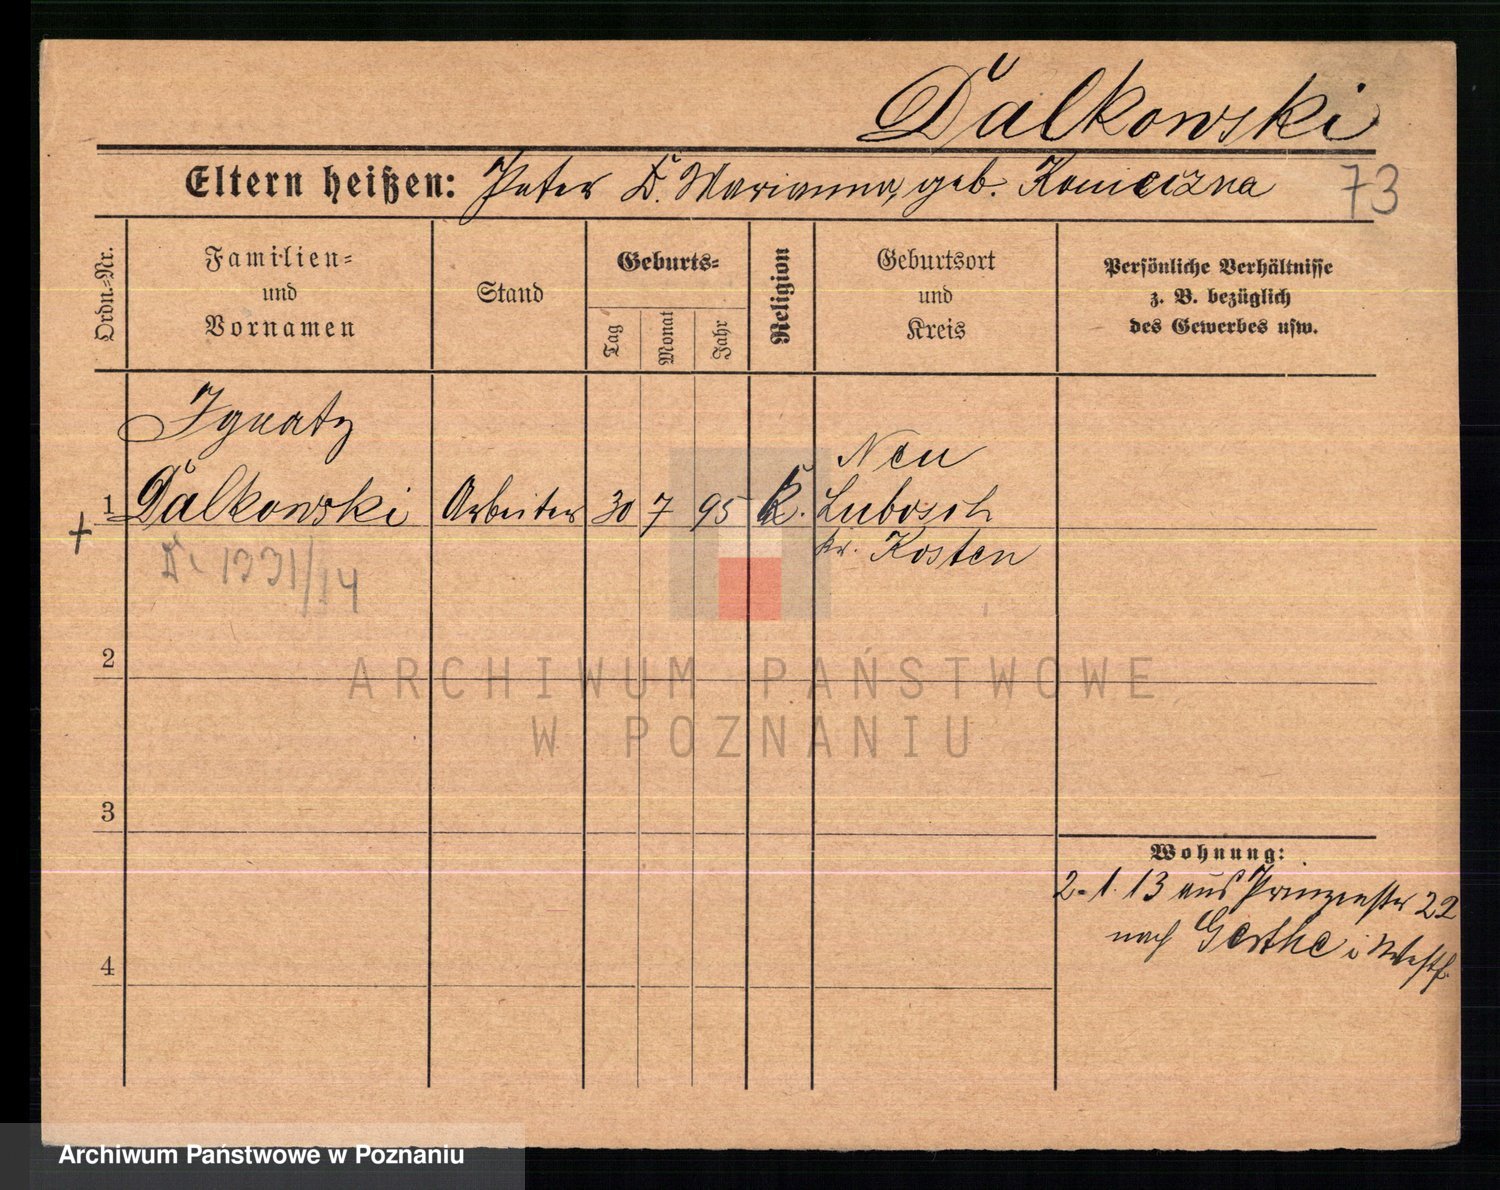 Dalkowski
Eltern heißen: Peter D. Marianna, geb. Konieczna
73
Ordn.=Nr.
Familien=
und
Vornamen
Stand
Geburts=
Tag
Monat
Jahr
Religion
Geburtsort
und
Kreis
Persönliche Verhältnisse
z. B. bezüglich
des Gewerbes usw.
Ignatz
Neu
1 Dalkowski Arbeiter 30 7 95 k. Lubosch
Kr. Kosten
1331/14
2
ARCHIWUM PAŃSTWOWE
W POZNANIU
3
Wohnung:
2.1.13 aus Prinzenstr 22
nach Gerthe i Westf.
4
Archiwum Państwowe w Poznaniu